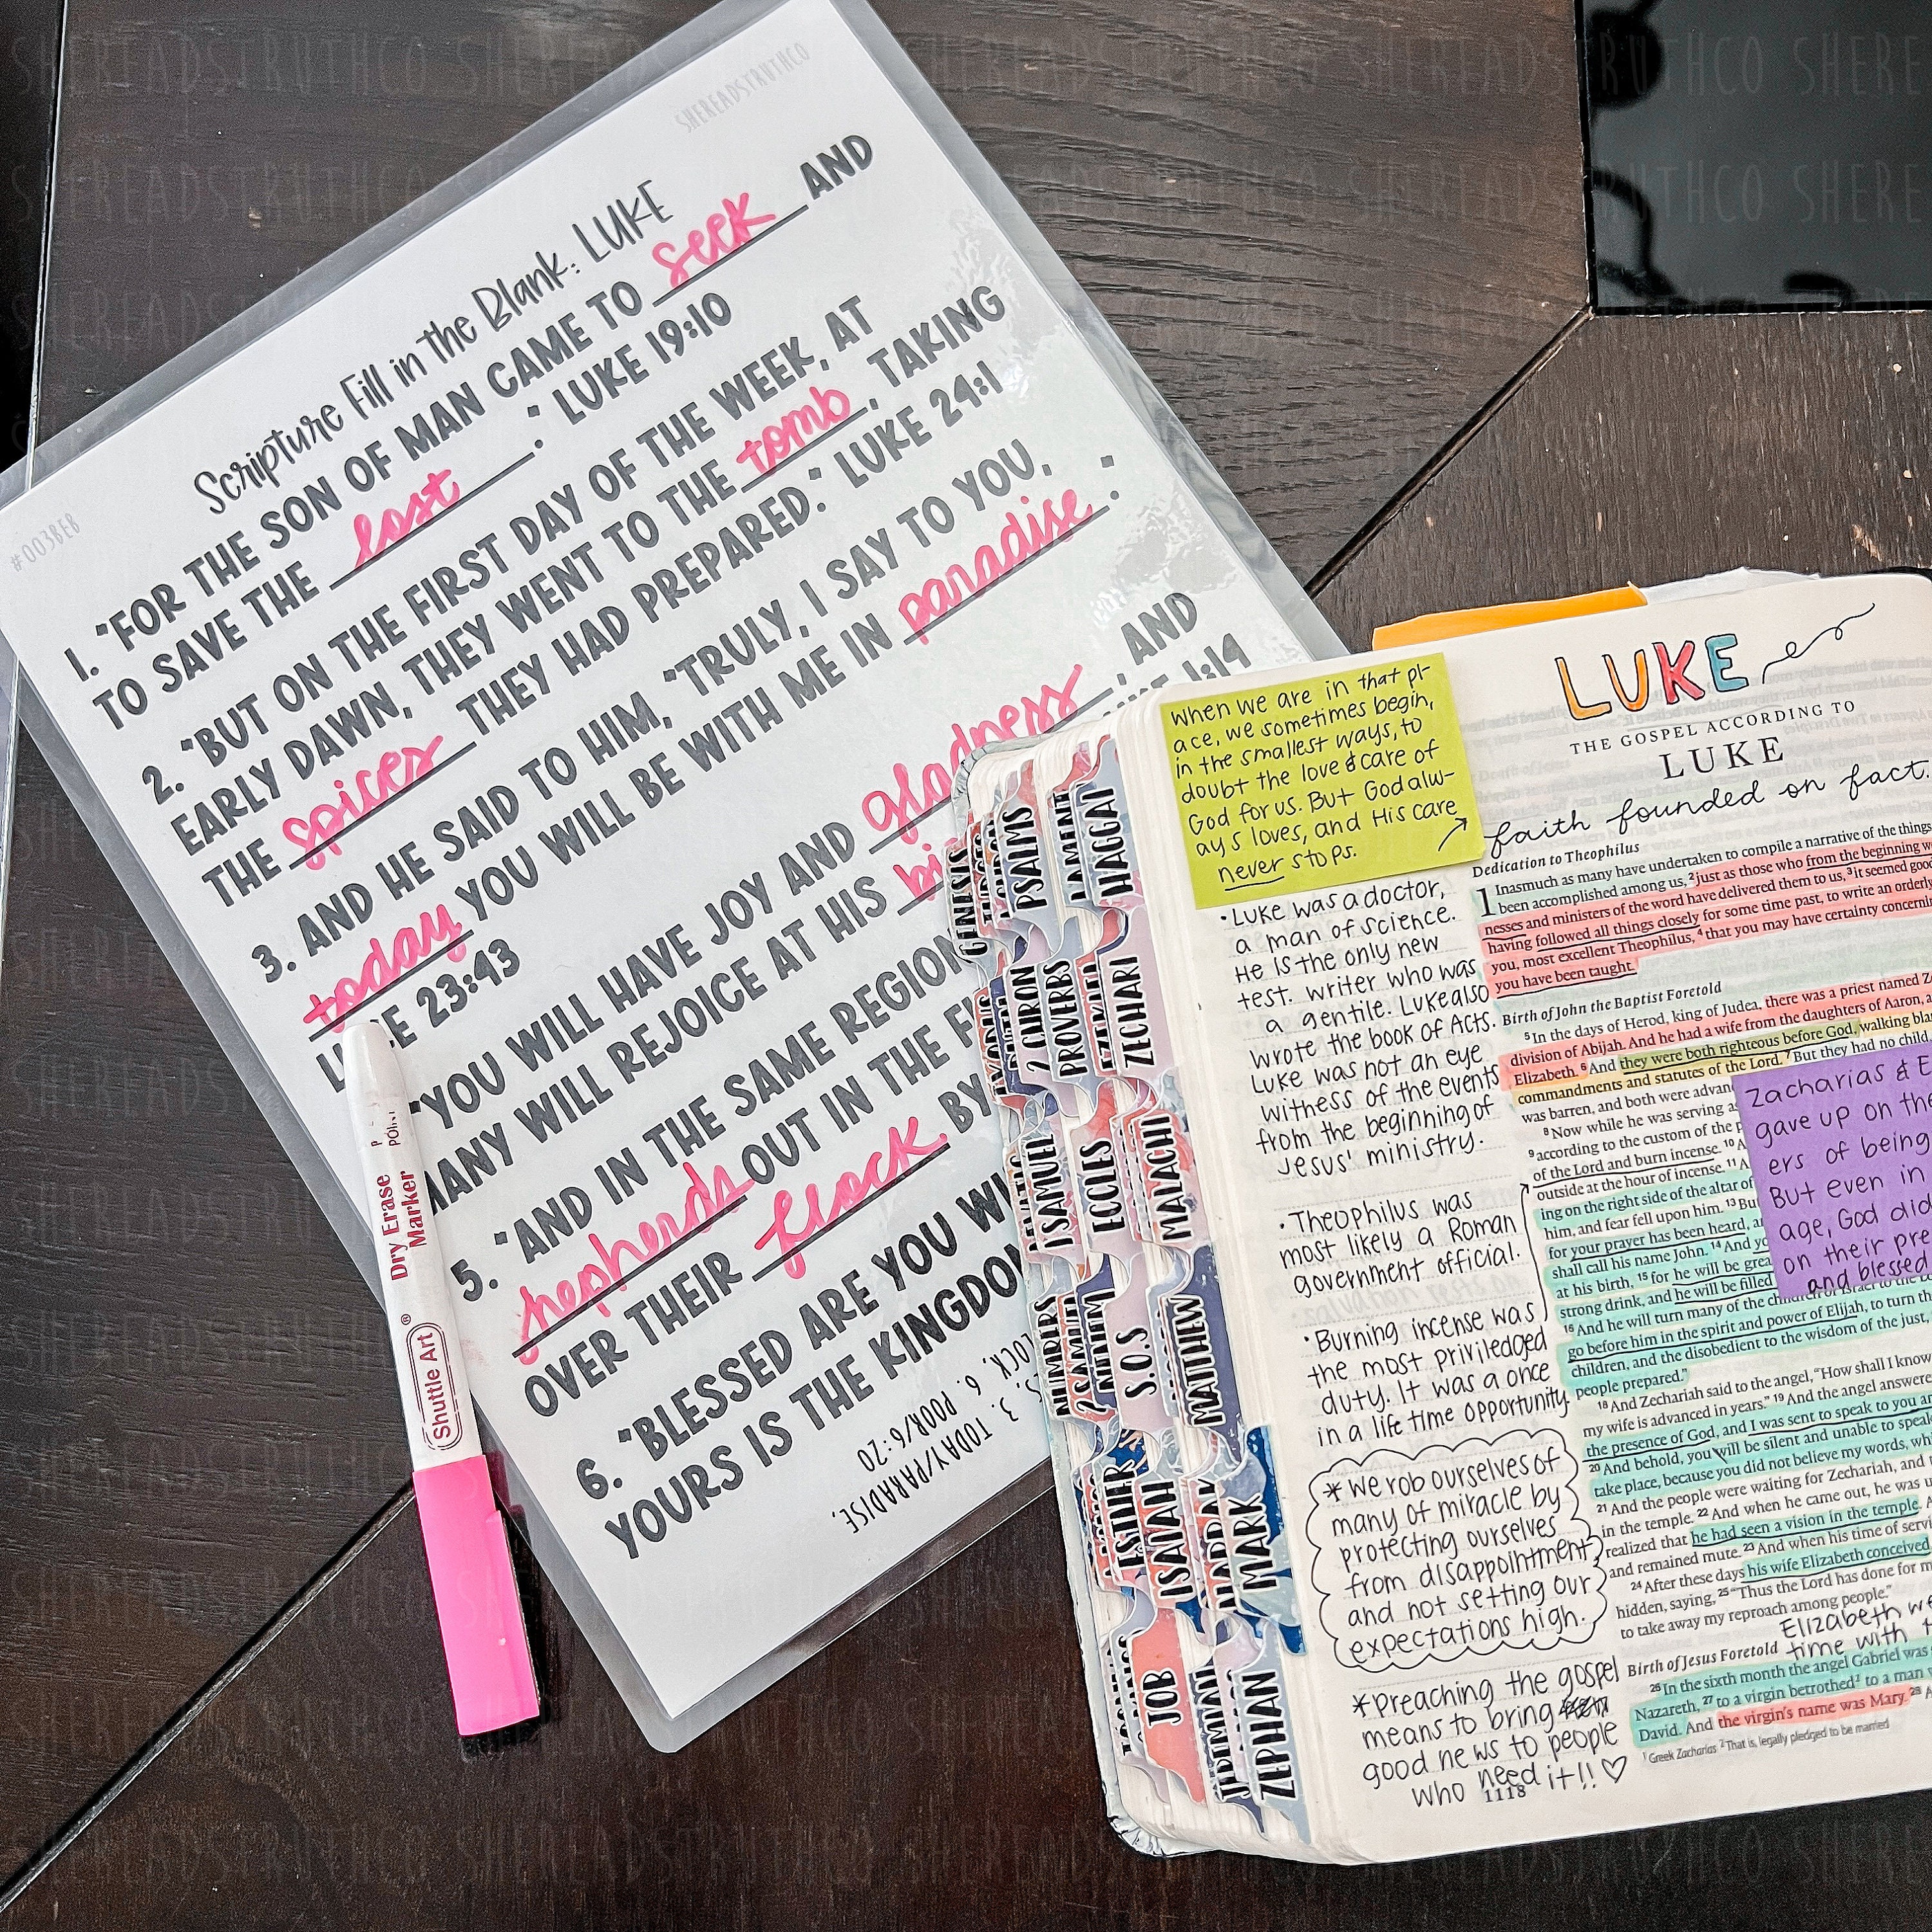 SHEREADSTRUTHCO
#003BEB
Scripture Fill in the Blank: LUKE
1. "FOR THE SON OF MAN CAME TO seek AND
TO SAVE THE lost." LUKE 19:10
2. "BUT ON THE FIRST DAY OF THE WEEK, AT
EARLY DAWN, THEY WENT TO THE tomb, TAKING
THE spices THEY HAD PREPARED." LUKE 24:1
3. AND HE SAID TO HIM, "TRULY, I SAY TO YOU,
today YOU WILL BE WITH ME IN paradise."
23:43
"YOU WILL HAVE JOY AND gladness, AND
MANY WILL REJOICE AT HIS
1:14
5. "AND IN THE SAME REGION
shepherds OUT IN THE
OVER THEIR flock BY
6. "BLESSED ARE YOU
YOURS IS THE
TODAY/PARADISE,
6. POOR/6:20
Dry Erase
Marker
Shuttle Art®
GENESIS
PSALMS
HAGGAI
2 CHRON
PROVERBS
EZEKIEL
ZECHARI
1 SAMUEL
ECCLES
MALACHI
NUMBERS
2 SAMUEL
NEHEM
S.O.S
MATTHEW
ESTHER
ISAIAH
MARK
JOB
JEREMIAH
ZEPHAN
when we are in that pl-
ace, we sometimes begin,
in the smallest ways, to
doubt the love & care of
God for us. But God alw-
ays loves, and His care
never stops.
LUKE
THE GOSPEL ACCORDING TO
LUKE
faith founded on fact.
• Luke was a doctor,
a man of science.
He is the only new
test. writer who was
a gentile. Luke also
wrote the book of Acts.
Luke was not an eye
witness of the events
from the beginning of
Jesus' ministry.
• Theophilus was
most likely a Roman
government official.
• Burning incense was
the most priviledged
duty. It was a once
in a life time opportunity.
* we rob ourselves of
many of miracle by
protecting ourselves
from disappointment
and not setting our
expectations high.
* preaching the gospel
means to bring
good news to people
who need it!! ♡
1118
Dedication to Theophilus
1 Inasmuch as many have undertaken to compile a narrative of the things
been accomplished among us, 2 just as those who from the beginning
nesses and ministers of the word have delivered them to us, 3 it seemed good
having followed all things closely for some time past, to write an orderly
you, most excellent Theophilus, 4 that you may have certainty
you have been taught.
Birth of John the Baptist Foretold
5 In the days of Herod, king of Judea, there was a priest named
division of Abijah. And he had a wife from the daughters of Aaron,
Elizabeth. 6 And they were both righteous before God, walking
commandments and statutes of the Lord. 7 But they had no child,
was barren, and both were
8 Now while he was serving
9 according to the custom of the
of the Lord and burn incense. 10
outside at the hour of incense. 11
ing on the right side of the altar of
him, and fear fell upon him. 13
for your prayer has been heard,
shall call his name John. 14 And
at his birth, 15 for he will be
strong drink, and he will be filled
16 And he will turn many of the
go before him in the spirit and power of Elijah, to turn the
children, and the disobedient to the wisdom of the just,
people prepared."
18 And Zechariah said to the angel, "How shall I know
my wife is advanced in years." 19 And the angel answered
the presence of God, and I was sent to speak to you
20 And behold, you will be silent and unable to speak
take place, because you did not believe my words,
21 And the people were waiting for Zechariah, and
in the temple. 22 And when he came out, he was
realized that he had seen a vision in the temple.
and remained mute. 23 And when his time of
24 After these days his wife Elizabeth conceived
hidden, saying, 25 "Thus the Lord has done for
to take away my reproach among people."
Elizabeth
time with
Birth of Jesus Foretold
26 In the sixth month the angel Gabriel was
Nazareth, 27 to a virgin betrothed2 to a man
David. And the virgin's name was Mary. 28
1 Greek Zacharias 2 That is, legally pledged to be married
Zacharias &
gave up on
ers of being
But even in
age, God
on their
and blessed